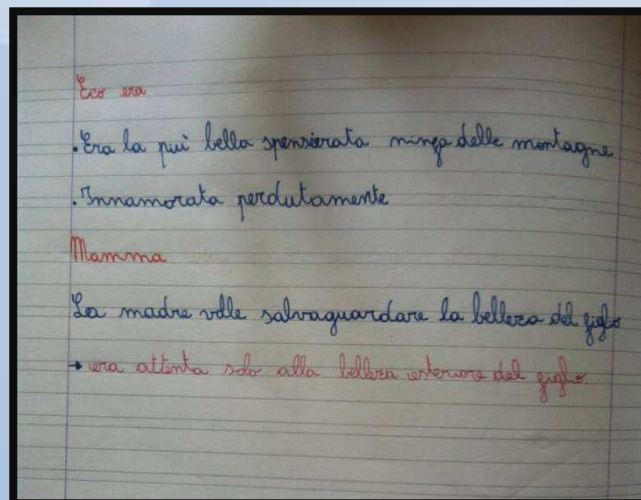 Eco era
.Era la pui bella spensierata ninfa delle montagne
.Innamorata perdutamente
Mamma
La madre volle salvaguardare la bellezza del figlio
→ era attenta solo alla bellezza esteriore del figlio.